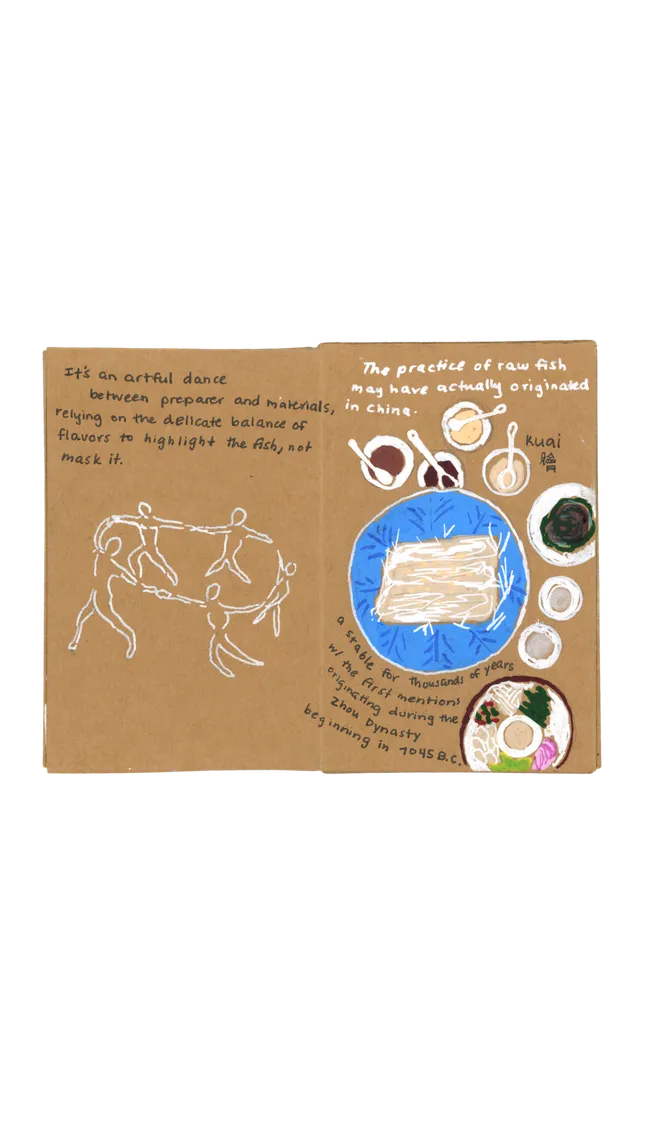 It's an artful dance
between preparer and materials,
relying on the delicate balance of
flavors to highlight the fish, not
mask it.
The practice of raw fish
may have actually originated
in china.
Kuai
膾
a stable for thousands of years
w/ the first mentions
originating during the
Zhou Dynasty
beginning in 1045 B.C.